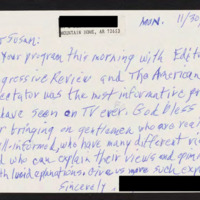 MOUNTAIN HOME, AR 72653
MON. 11/30
r Susan:
Your program this morning with Edito
gressive Review and The American
ectator was the most informative pro
have seen on TV ever. God bless
r bringing on gentlemen who are rea
ll-informed, who have many different vi
d who can explain their views and opini
th lucid explanations. Give us more such exp
Sincerely,